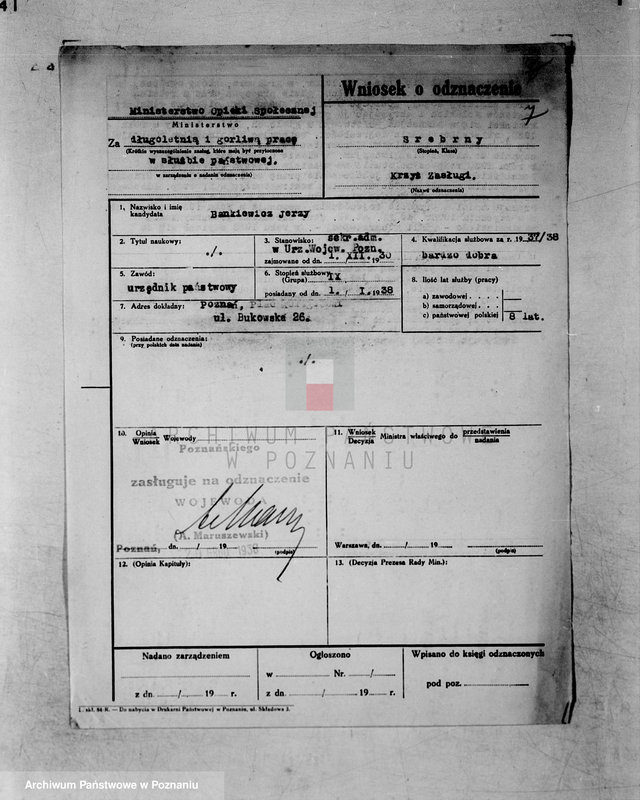 Wniosek o odznaczenie
7
Ministerstwo Opieki Społecznej
Ministerstwo
Za długoletnią i gorliwą pracę
(Krótkie wyszczególnienie zasług, które mają być przytoczone
w służbie państwowej.
w zarządzeniu o nadaniu odznaczenia)
Srebrny
(Stopień, Klasa)
Krzyż Zasługi.
(Nazwa odznaczenia)
1. Nazwisko i imię kandydata
Bankiewicz Jerzy
2. Tytuł naukowy:
./.
3. Stanowisko: sekr.adm.
w Urz.Wojew. Pozn.
zajmowane od dn. 1. XII. 1930
4. Kwalifikacja służbowa za r. 1937/38
bardzo dobra
5. Zawód:
urzędnik państwowy
6. Stopień służbowy
(Grupa) IX
posiadany od dn. 1. / I. 1938
7. Adres dokładny: Poznań,
ul. Bukowska 26.
8. Ilość lat służby (pracy)
a) zawodowej . . . .
b) samorządowej . .
c) państwowej polskiej 8 lat.
9. Posiadane odznaczenia:
(przy polskich data nadania)
./.
10. Opinia
Wniosek
Wojewody
Poznańskiego
zasługuje na odznaczenie
WOJEWODA
(A. Maruszewski)
Poznań, dn. / 19
(podpis)
11. Wniosek
Decyzja
Ministra właściwego do
przedstawienia
nadania
Warszawa, dn. / 19
(podpis)
12. (Opinia Kapituły):
13. (Decyzja Prezesa Rady Min.):
Nadano zarządzeniem
z dn. / 19 r.
Ogłoszono
w Nr. /
z dn. / 19 r.
Wpisano do księgi odznaczonych
pod poz.
L. skł. 84-R. — Do nabycia w Drukarni Państwowej w Poznaniu, ul. Składowa 3.
ARCHIWUM PAŃSTWOWE
W POZNANIU
Archiwum Państwowe w Poznaniu